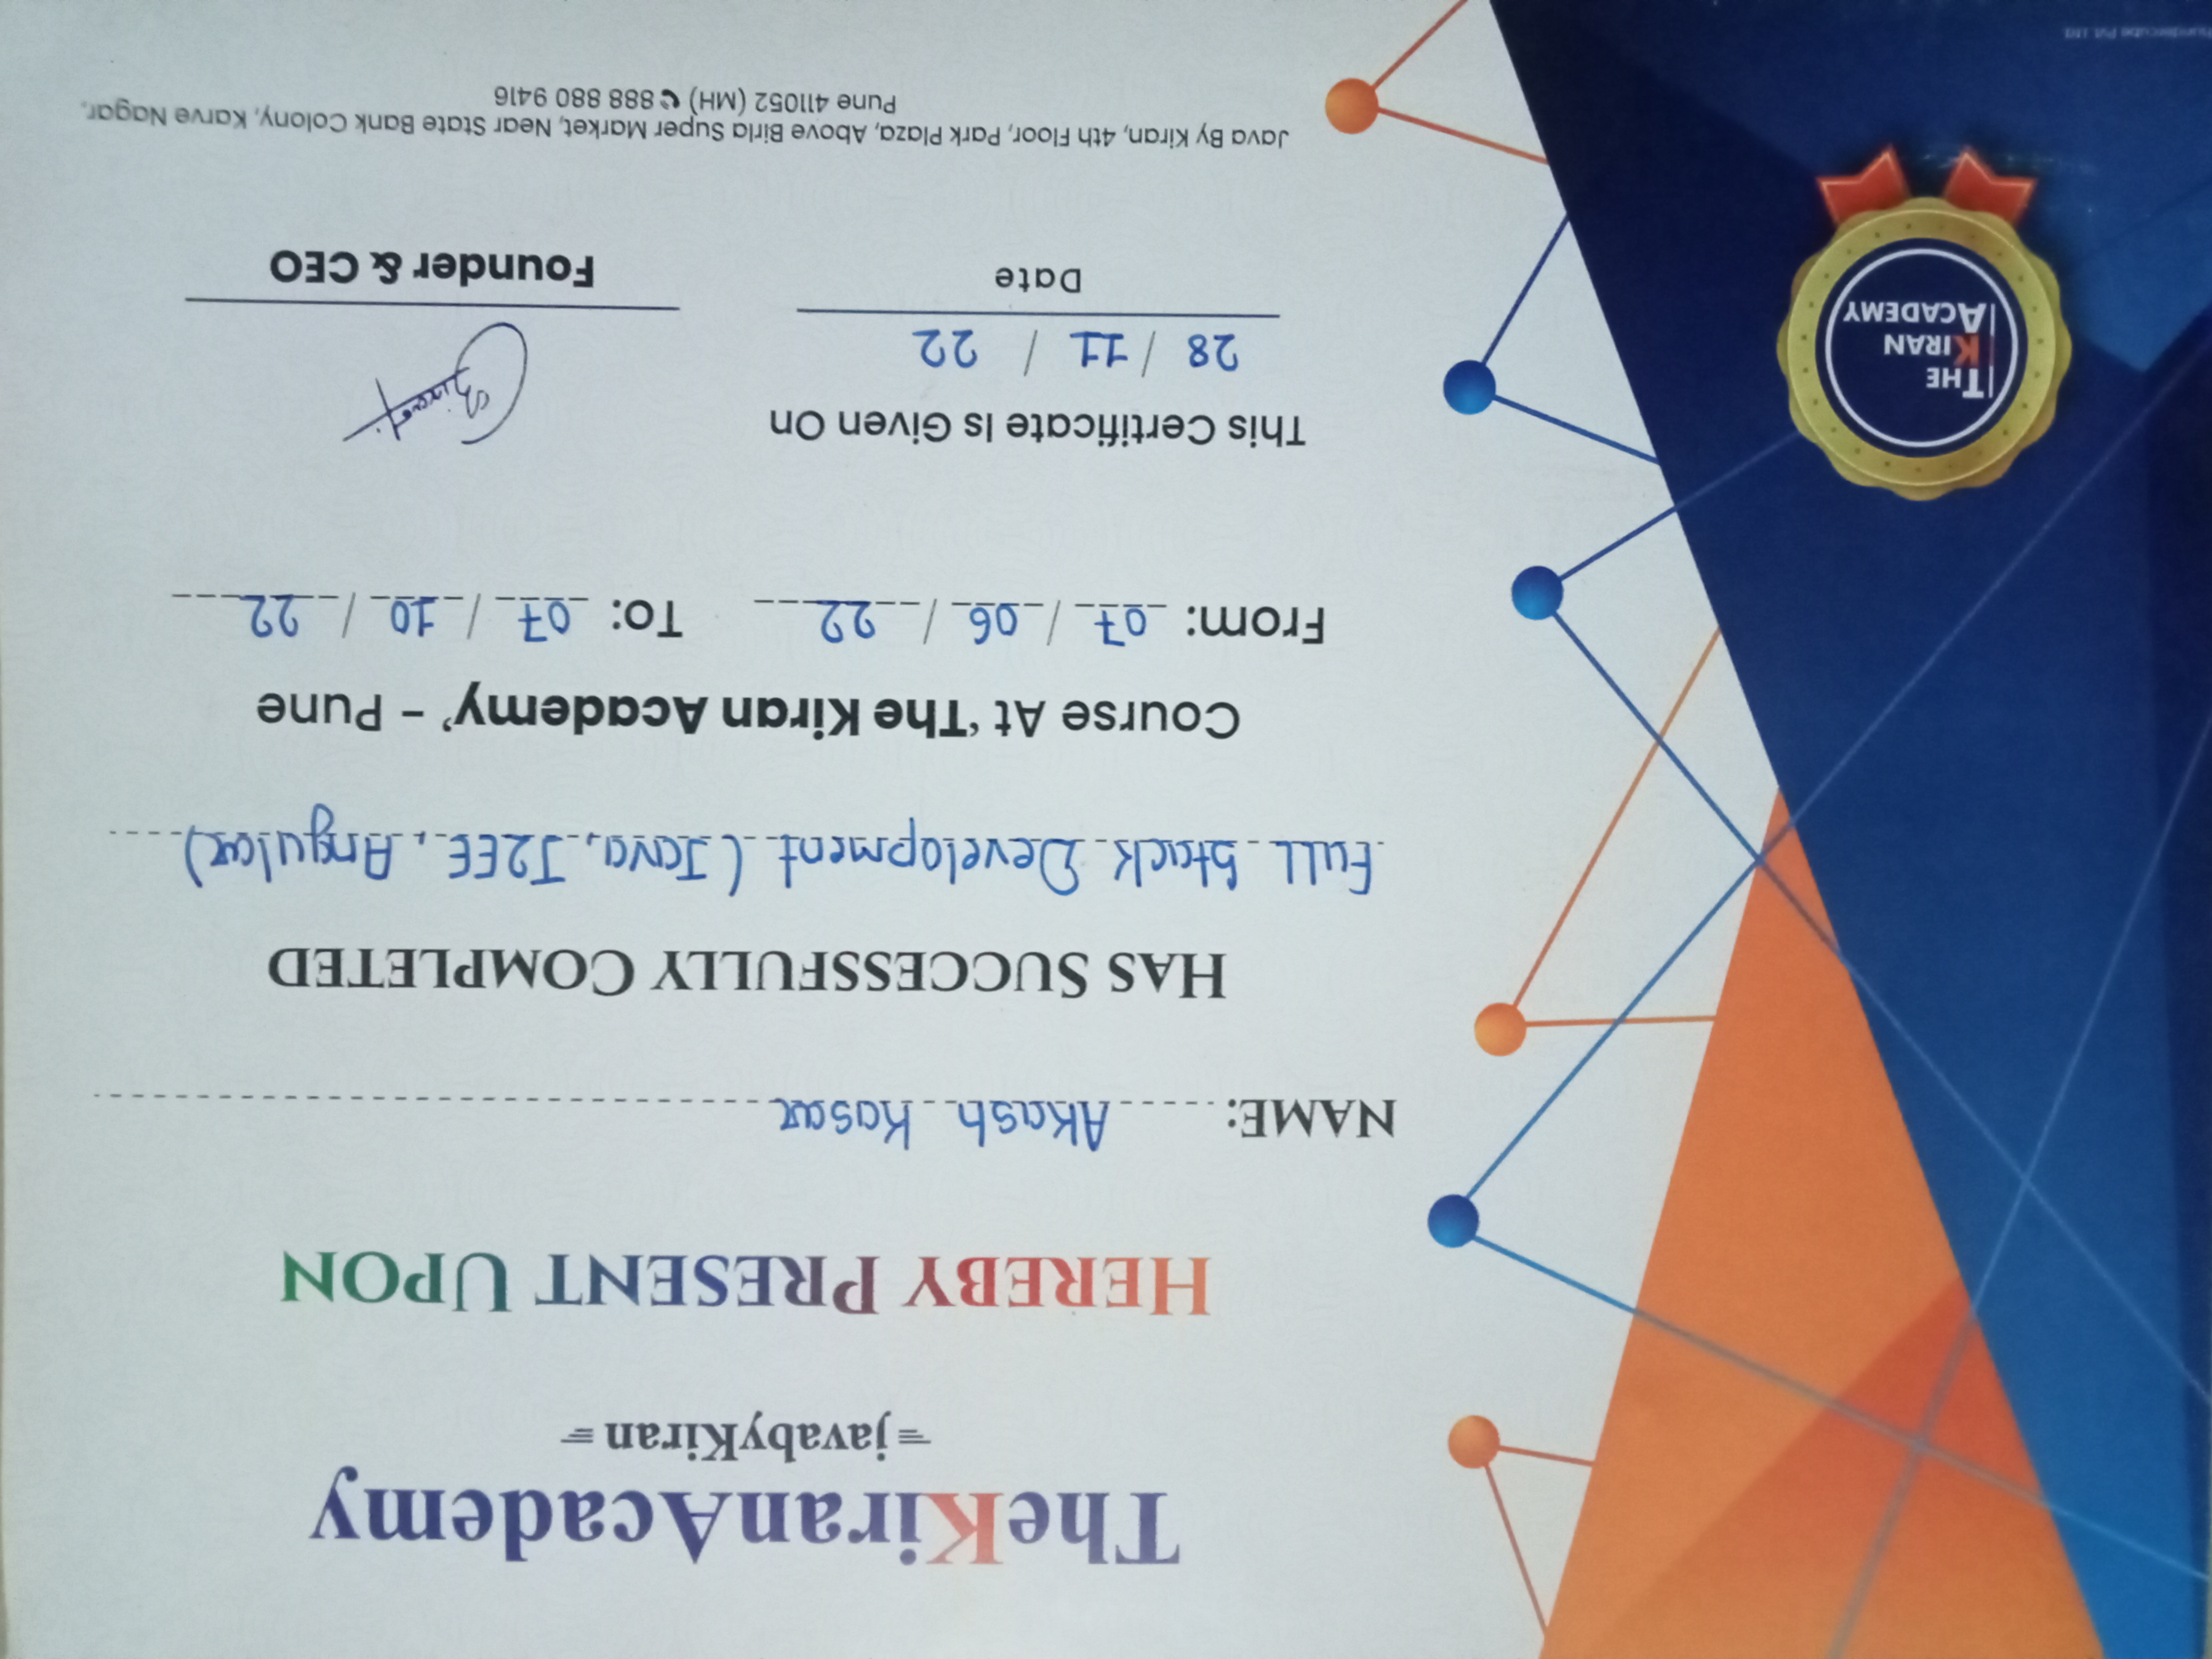 TheKiranAcademy
javabyKiran
HEREBY PRESENT UPON
NAME: Akash Kasar
HAS SUCCESSFULLY COMPLETED
Full Stack Development (Java, J2EE, Angular)
Course At ‘The Kiran Academy’ - Pune
From: 07 / 06 / 22 To: 07 / 10 / 22
This Certificate Is Given On
28 / 11 / 22
Date
Founder & CEO
THE
KIRAN
ACADEMY
Java By Kiran, 4th Floor, Park Plaza, Above Birla Super Market, Near State Bank Colony, Karve Nagar,
Pune 411052 (MH) 888 880 9416
Pvt. Ltd